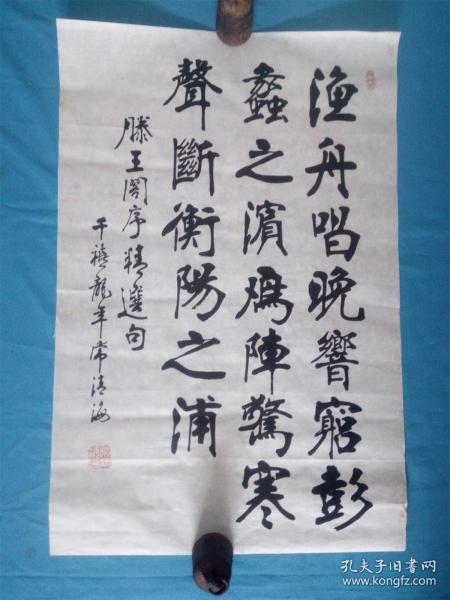 渔舟唱晚響窮彭
蠡之濱雁陣驚寒
聲斷衡陽之浦
滕王阁序精選句
千禧龍年常清海
孔夫子旧书网
www.kongfz.com